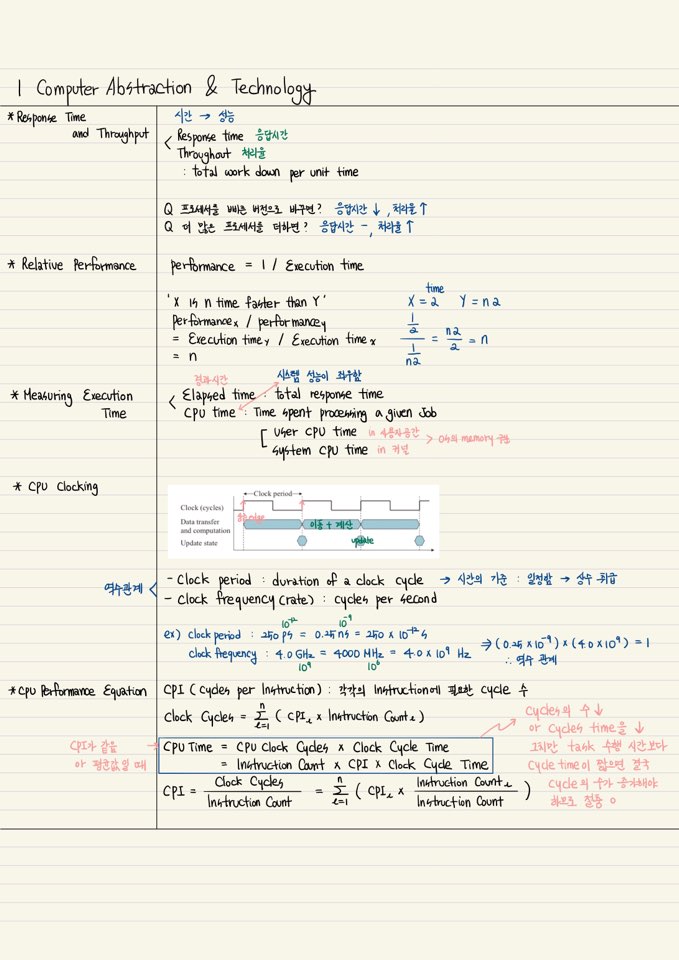 1 Computer Abstraction & Technology
* Response Time
and Throughput
시간 → 성능
< Response time 응답시간
Throughout 처리율
: total work down per unit time
Q 프로세서를 빠른 버전으로 바꾸면? 응답시간 ↓, 처리율 ↑
Q 더 많은 프로세서를 더하면? 응답시간 -, 처리율 ↑
* Relative Performance
performance = 1 / Execution time
'X is n time faster than Y'
time
X = 2 Y = n2
performance_X / performance_Y
= Execution time_Y / Execution time_X
= n
(1/2) / (1/n2) = n2/2 = n
* Measuring Execution
Time
경과시간
시스템 성능이 좌우함
< Elapsed time : total response time
CPU time : Time spent processing a given job
[ user CPU time in 사용자공간
system CPU time in 커널
> OS의 memory
* CPU Clocking
Clock period
Clock (cycles)
edge
Data transfer
and computation
이동 + 계산
Update state
update
역수관계 <
- Clock period : duration of a clock cycle → 시간의 기준 : 일정함 → 상수 취급
- Clock frequency (rate) : cycles per second
10⁻¹² 10⁻⁹
ex) clock period : 250 ps = 0.25 ns = 250 × 10⁻¹² s
clock frequency : 4.0 GHz = 4000 MHz = 4.0 × 10⁹ Hz
10⁹ 10⁶
⇒ (0.25 × 10⁻⁹) × (4.0 × 10⁹) = 1
∴ 역수 관계
* CPU Performance Equation
CPI (cycles per Instruction) : 각각의 Instruction에 필요한 cycle 수
Clock Cycles = Σ(i=1, n) ( CPIᵢ × Instruction Countᵢ )
CPI가 같음
or 평균값일 때
→ CPU Time = CPU Clock Cycles × Clock Cycle Time
= Instruction Count × CPI × Clock Cycle Time
Cycles의 수 ↓
or Cycles time을 ↓
그치만 task 수행 시간보다
Cycle time이 짧으면 결국
Cycle의 수가 증가해야
하므로 절충 o
CPI = Clock Cycles / Instruction Count = Σ(i=1, n) ( CPIᵢ × Instruction Countᵢ / Instruction Count )